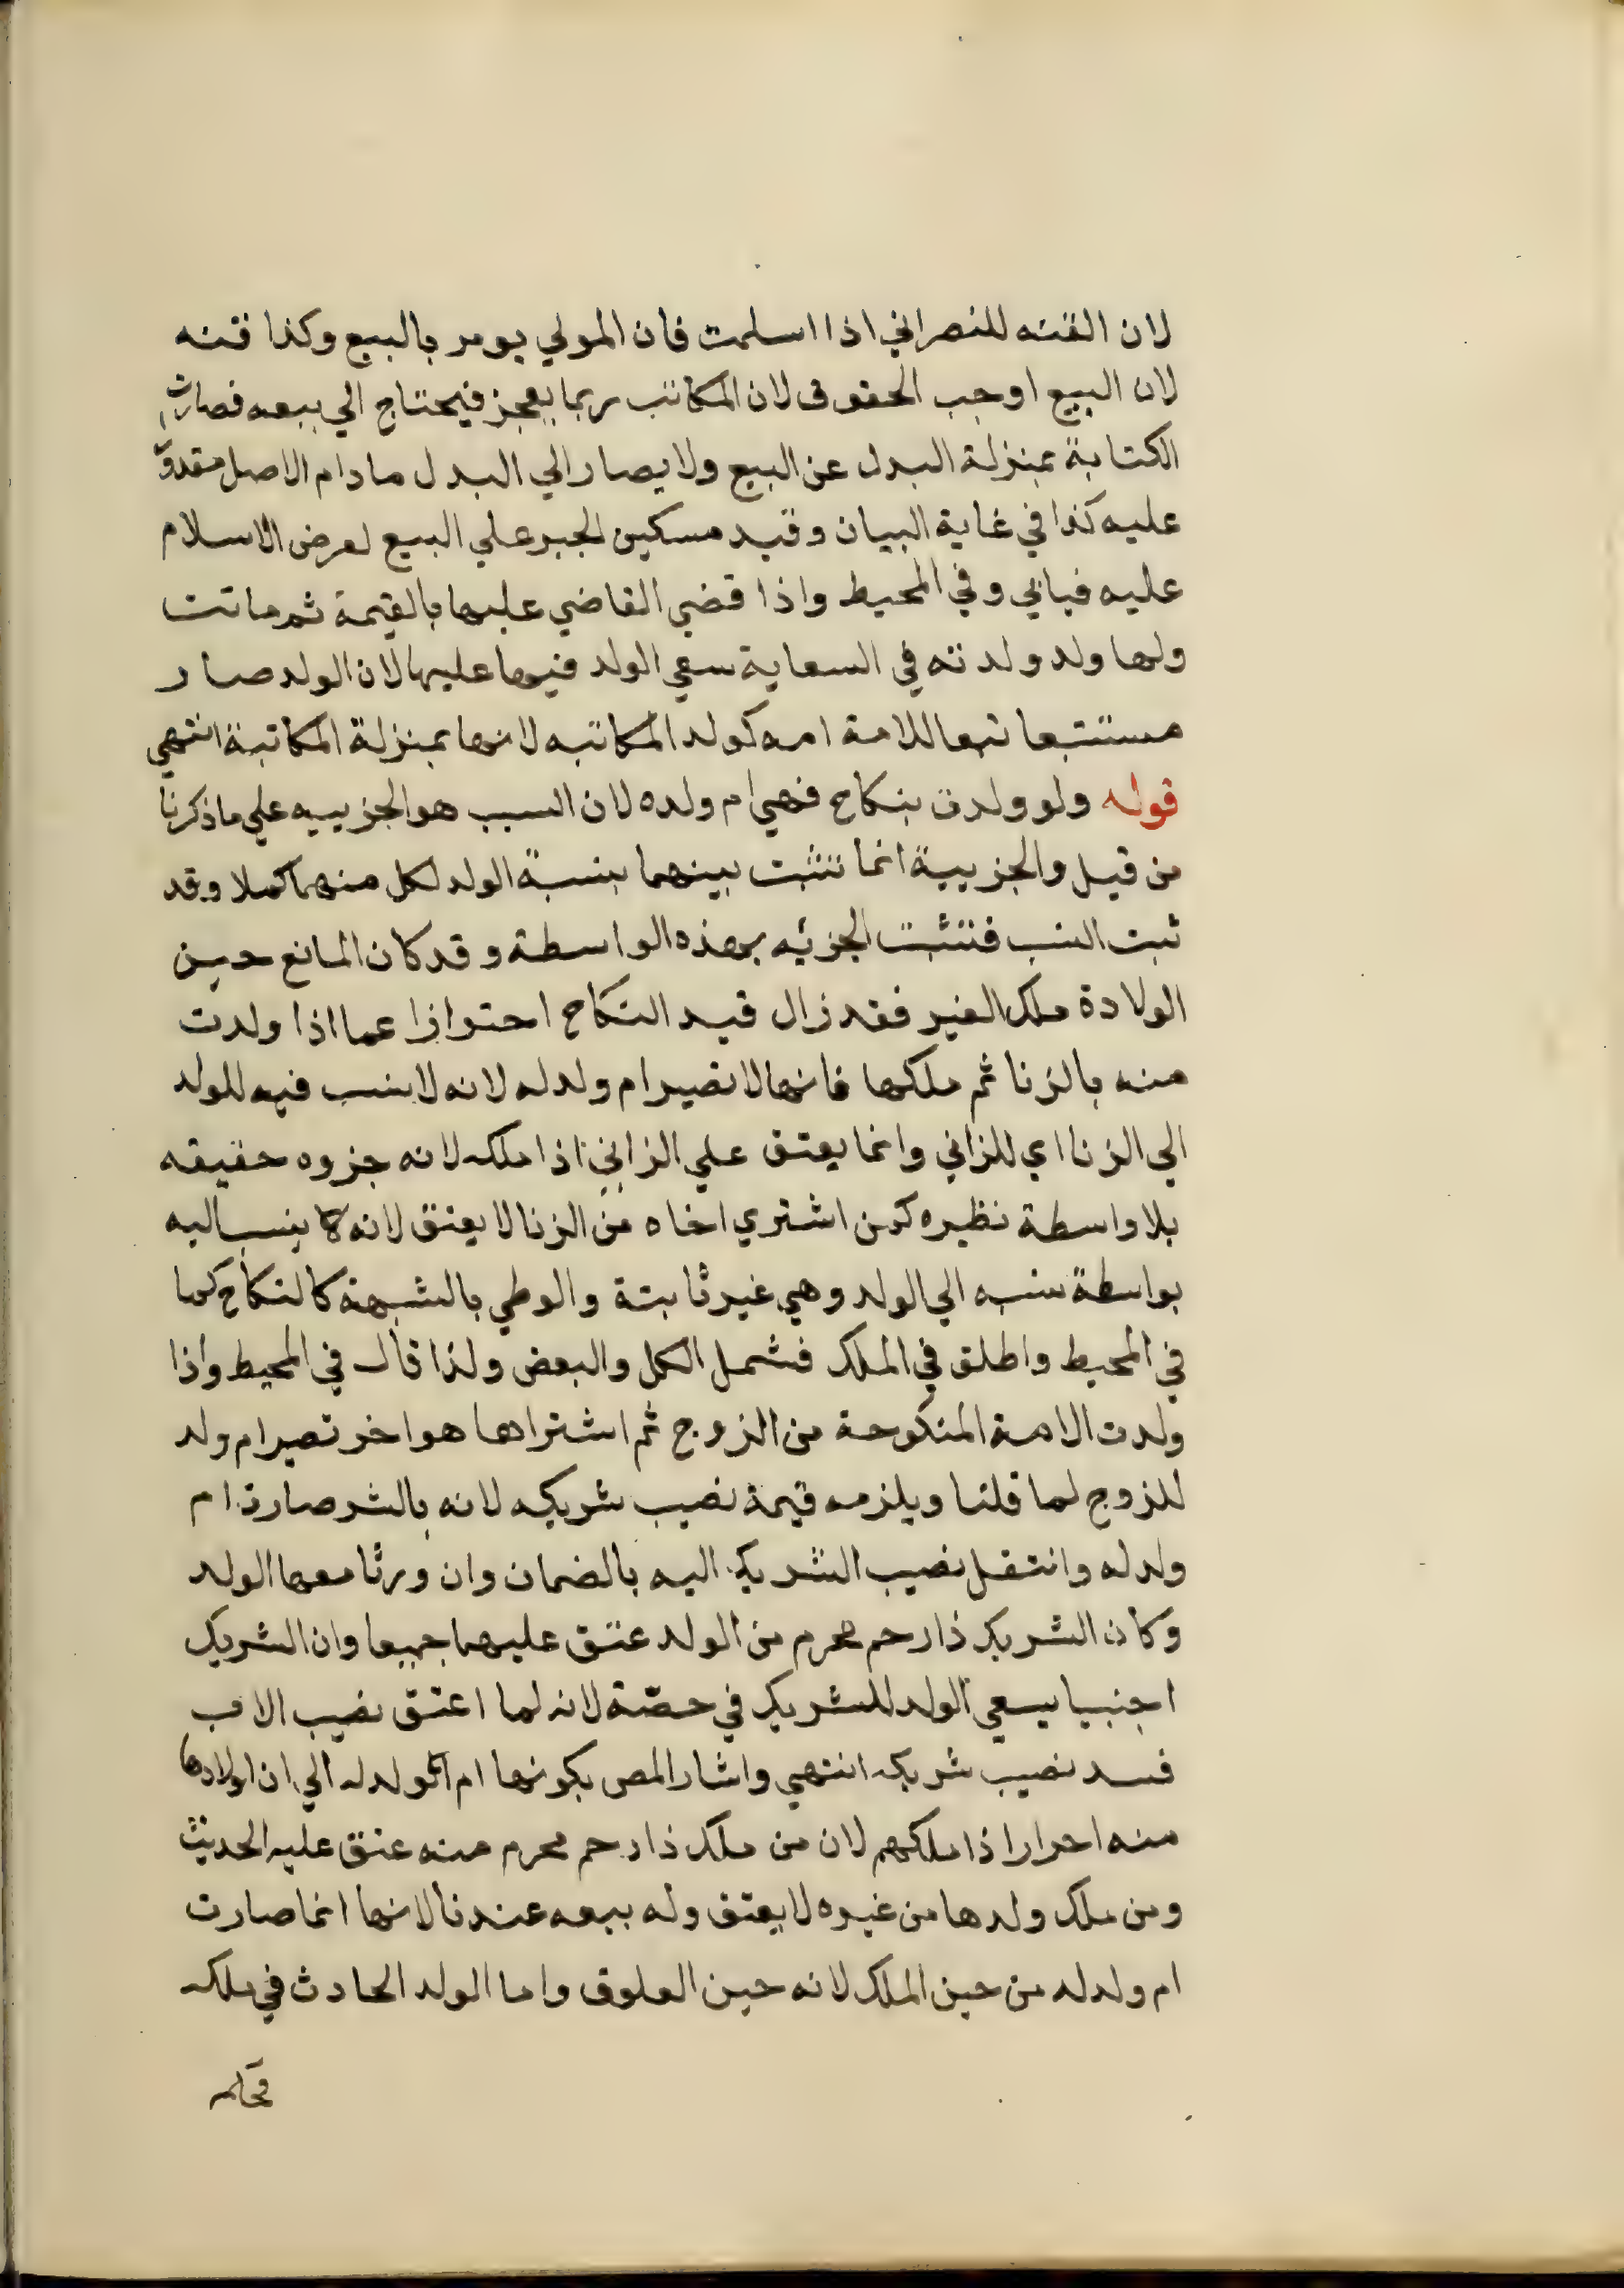 لان القنه للنصراني اذا اسلمت فان المولي يومر بالبيع وكذا قنه
لان البيع اوجب الحقوق لان المكاتب ربما يعجز فيحتاج الي بيعه فصارت
الكتابة بمنزلة البدل عن البيع ولا يصار الي البدل مادام الاصل مقدوّ
عليه كذا في غاية البيان وقيد مسكين الجبر علي البيع لعرض الاسلام
عليه فيابي وفي المحيط واذا قضي القاضي عليها بالقيمة ثم ماتت
ولها ولد ولدته في السعاية سعي الولد فيما عليها لان الولد صار
مستتبعا تبعا للامة امه كولد المكاتبه لانها بمنزلة المكاتبة انتهي
قوله ولو ولدت بنكاح فهي ام ولده لان السبب هو الجزييه علي ما ذكرنا
من قبل والجزيية انما تثبت بينهما بنسبة الولد لكل منهما كملا وقد
ثبت النسب فتثبت الجزئيه بهذه الواسطة وقد كان المانع حين
الولادة ملك الغير فقد زال قيد النكاح احترازا عما اذا ولدت
منه بالزنا ثم ملكها فانها لا تصير ام ولد له لانه لا ينسب فيه للولد
الي الزنا اي للزاني وانما يعتق علي الزاني اذا ملكه لانه جزوه حقيقه
بلا واسطة نظيره كمن اشتري اخاه من الزنا لا يعتق لانه ينسب اليه
بواسطة نسبه الي الولد وهي غير ثابتة والوطي بالشبهة كالنكاح كما
في المحيط واطلق في الملك فشمل الكل والبعض ولذا قال في المحيط واذا
ولدت الامة المنكوحة من الزوج ثم اشتراها هو واخر تصير ام ولد
للزوج لما قلنا ويلزمه قيمة نصيب شريكه لانه بالشر صارت ام
ولد له وانتقل نصيب الشريك اليه بالضمان وان ورثا معها الولد
وكان الشريك ذا رحم محرم من الولد عتق عليهما جميعا وان الشريك
اجنبيا يسعي الولد للشريك في حصّة لانه لما اعتق نصيب الاب
فسد نصيب شريكه انتهي واشار المص بكونها ام ولد له الي ان اولادها
منه احرار اذا ملكهم لان من ملك ذا رحم محرم منه عتق عليه الحديث
ومن ملك ولدها من غيره لا يعتق وله بيعه عندنا لانها انما صارت
ام ولد له من حين الملك لانه حين العلوق واما الولد الحادث في ملكه